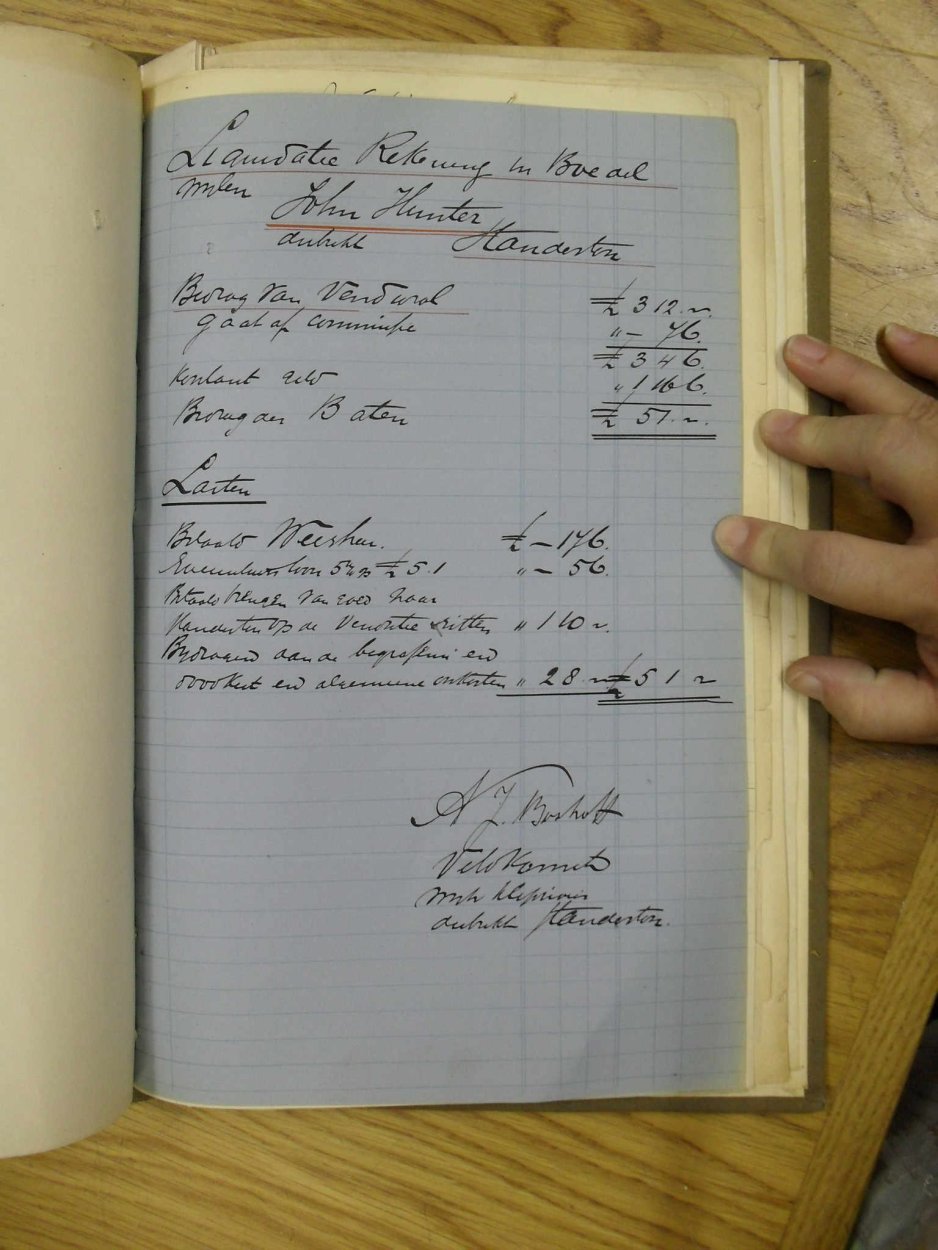 Liquidatie Rekening in Boedel
wylen
John Hunter
distrikt Standerton
Bedrag van Vendurol £ 312.~.
gaat af commissie " – 76.
£ 346.
Kontant geld " 1 166.
Bedrag der Baten £ 51.~.
Lasten
Betaald Weeshr. £ – 176.
Executeurs loon 5% op £ 5.1 " – 56.
Betaald brengen van goed naar
Standerton op de Vendutie & ritten " 1 10 ~.
Bydragend aan de begrafenis en
doodkist en algemeene onkosten " 28 ~ £ 5 1 ~
A J. Boshoff
Veldkornet
wyk Kliprivier
distrikt Standerton.